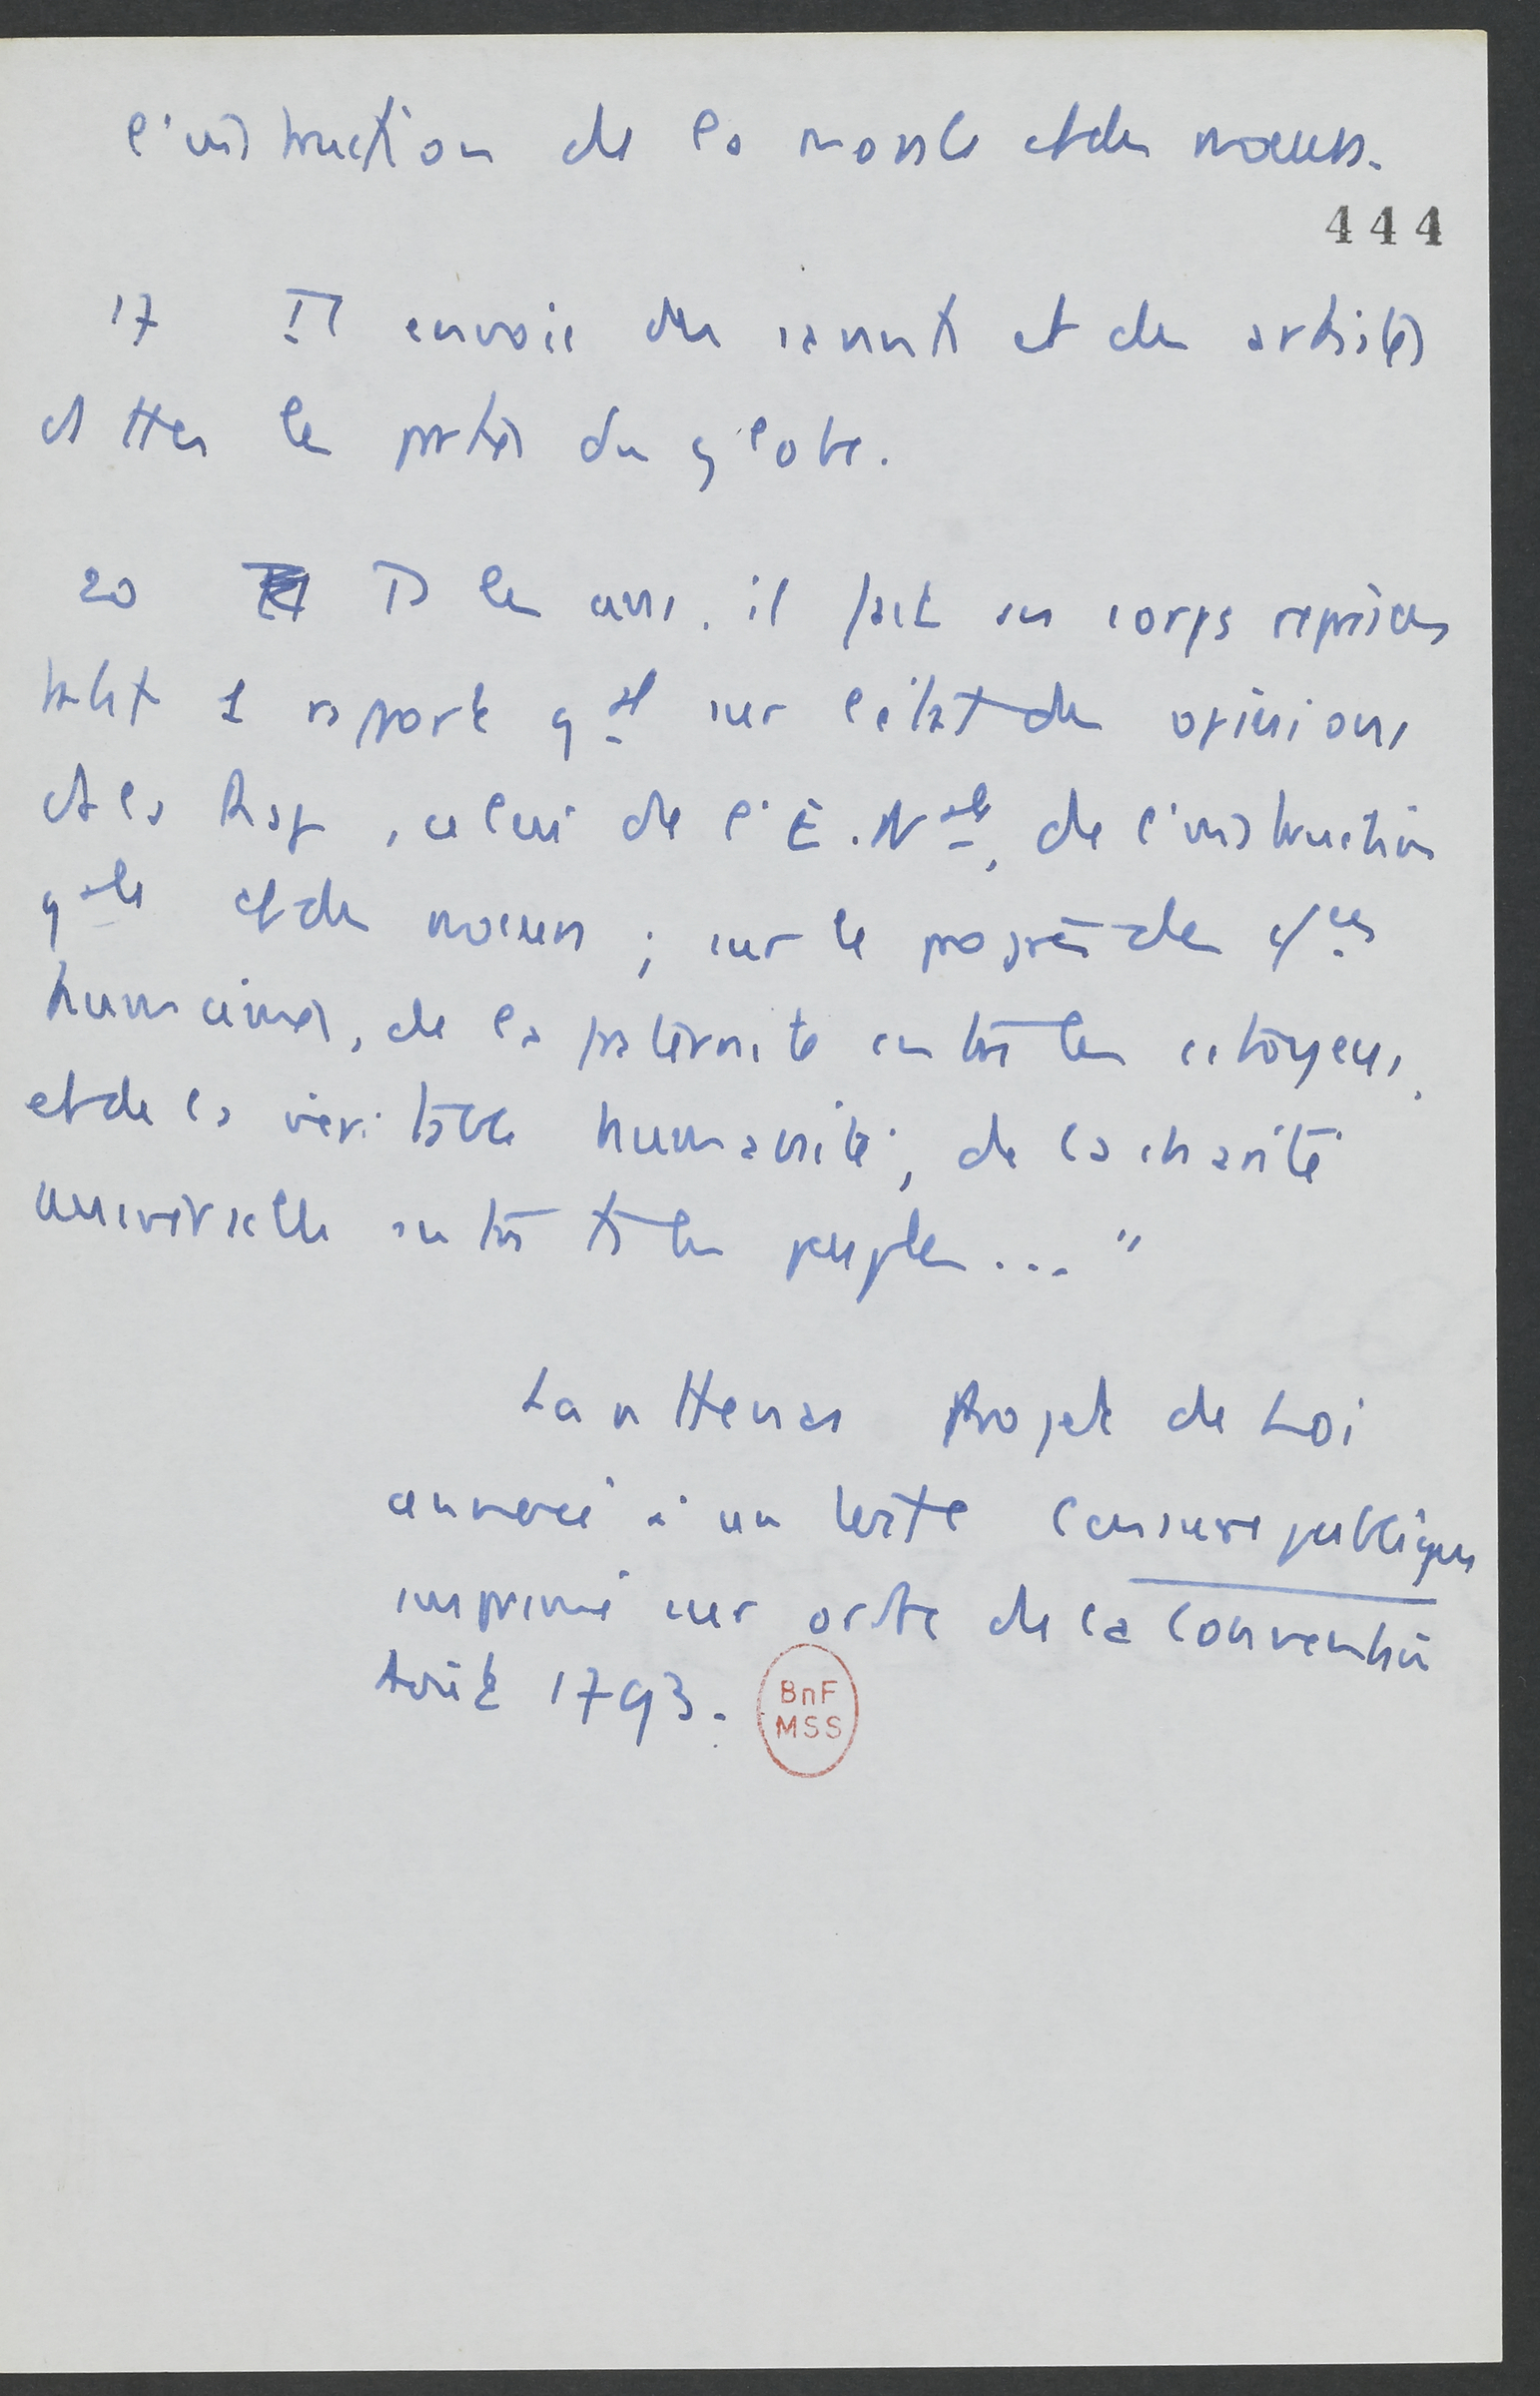 l'instruction de la morale et des moeurs.
444
17 Il envoie des savants et des artistes
ds ttes les parties du globe.
20 Ts les ans, il fait au corps représen
tatif 1 rapport gal sur l'état des opinions
ds la Rep, celui de l'E. Nale, de l'instruction
gale et des moeurs ; sur le progrès des cces
humaines, de la fraternité entre les citoyens,
et de la véritable humanité, de la charité
universelle entre ts les peuples... "
Lanthenas Projet de Loi
annexé à un texte Censure publique
imprimé sur ordre de la Convention
Août 1793.
BnF
MSS